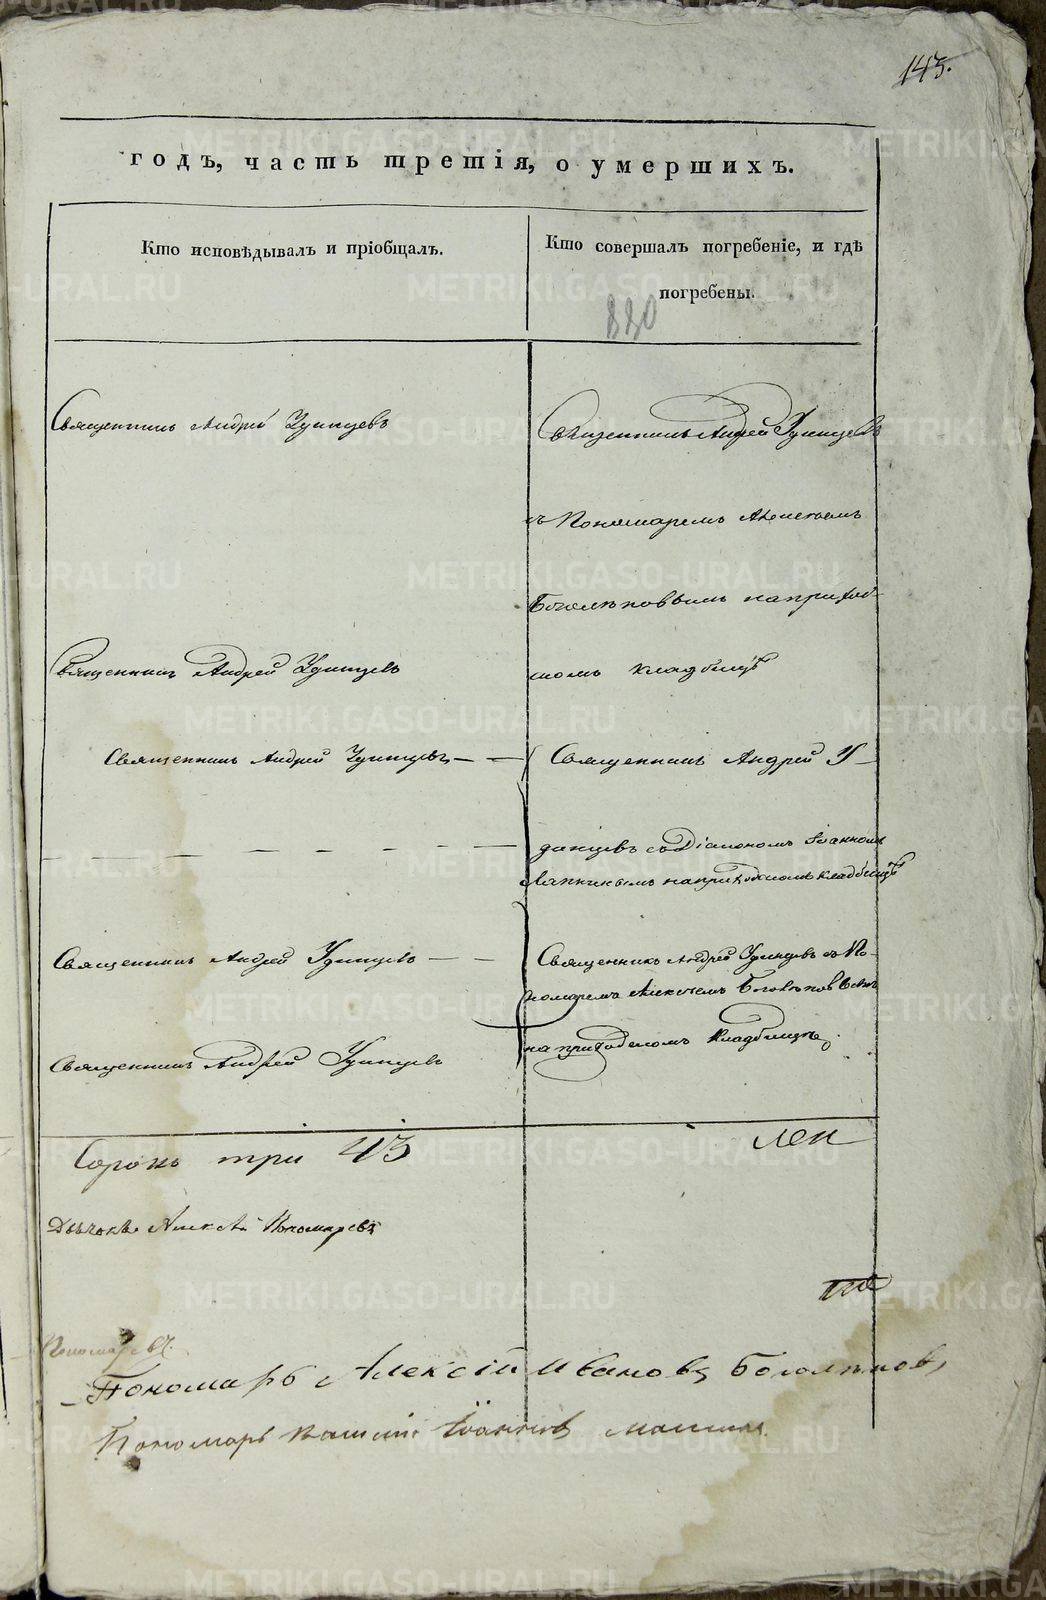 143.
годъ, часть третія, о умершихъ.
Кто исповѣдывалъ и пріобщалъ.
Кто совершалъ погребеніе, и гдѣ
погребены.
330
Священникъ Андрей Удинцевъ
Священникъ Андрей Удинцевъ
съ Пономаремъ Алексѣемъ
Боголѣповымъ на приход-
Священникъ Андрей Удинцевъ
скомъ кладбищѣ
Священникъ Андрей Удинцевъ
Священникъ Андрей У-
динцевъ съ Діакономъ Іоанномъ
на приходскомъ кладбищѣ
Священникъ Андрей Удинцевъ
Священникъ Андрей Удинцевъ съ По-
номаремъ Алексѣемъ Боголѣповымъ
на приходскомъ кладбищѣ
Священникъ Андрей Удинцевъ
Сорокъ три 43
Дьячокъ Алексѣй Пономаревъ
Пономаревъ
Пономарь Алексій Ивановъ Боголѣповъ
Пономарь Іоанновъ
METRIKI.GASO-URAL.RU